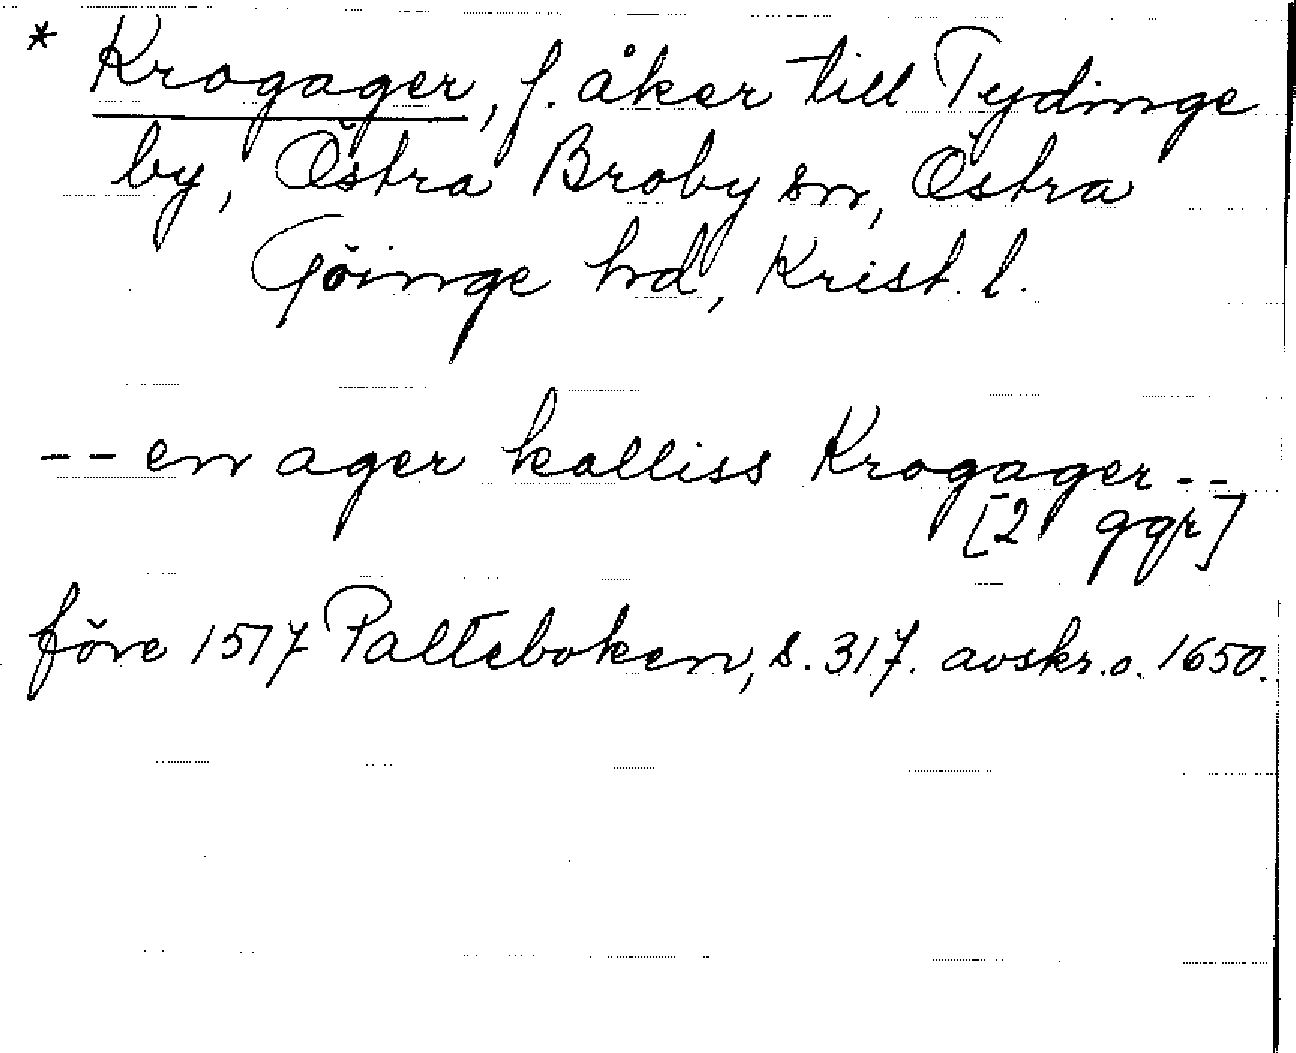 * Krogager, f. åker till Tydinge
by, Östra Broby sn, Östra
Göinge hd, Krist. l.
-- en ager kalliss Krogager --
[2 ggr]
före 1517 Palteboken, s. 317. avskr. o. 1650.